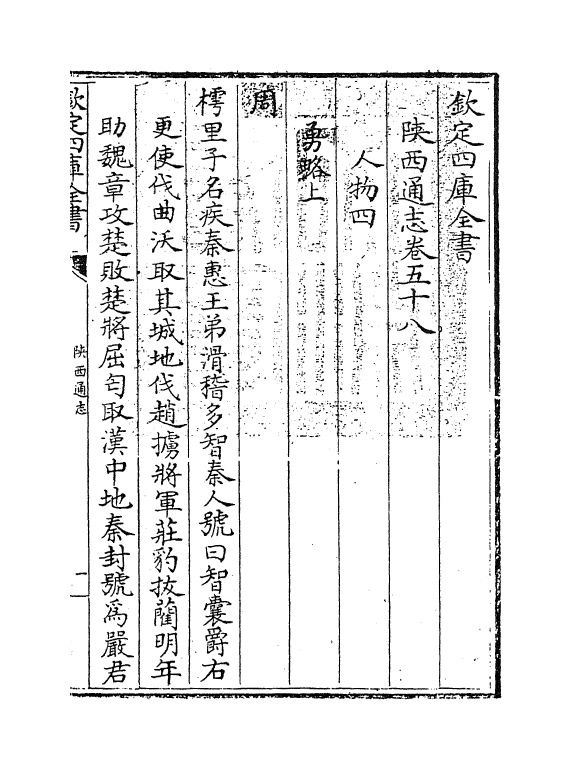 欽定四庫全書
陝西通志卷五十八
人物四
勇略上
周
樗里子名疾秦惠王弟滑稽多智秦人號曰智囊爵右
更使伐曲沃取其城地伐趙擄將軍莊豹拔藺明年
助魏章攻楚敗楚將屈匄取漢中地秦封號為嚴君
欽定四庫全書
陝西通志
一